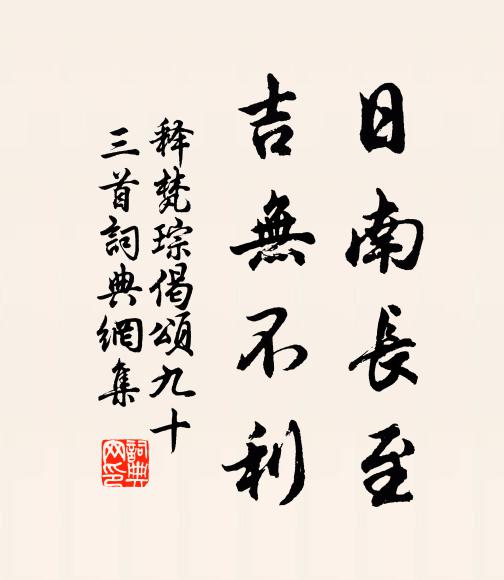 日南長至
吉無不利
释梵琮偈頌九十
三首詞典網集
詞典網印